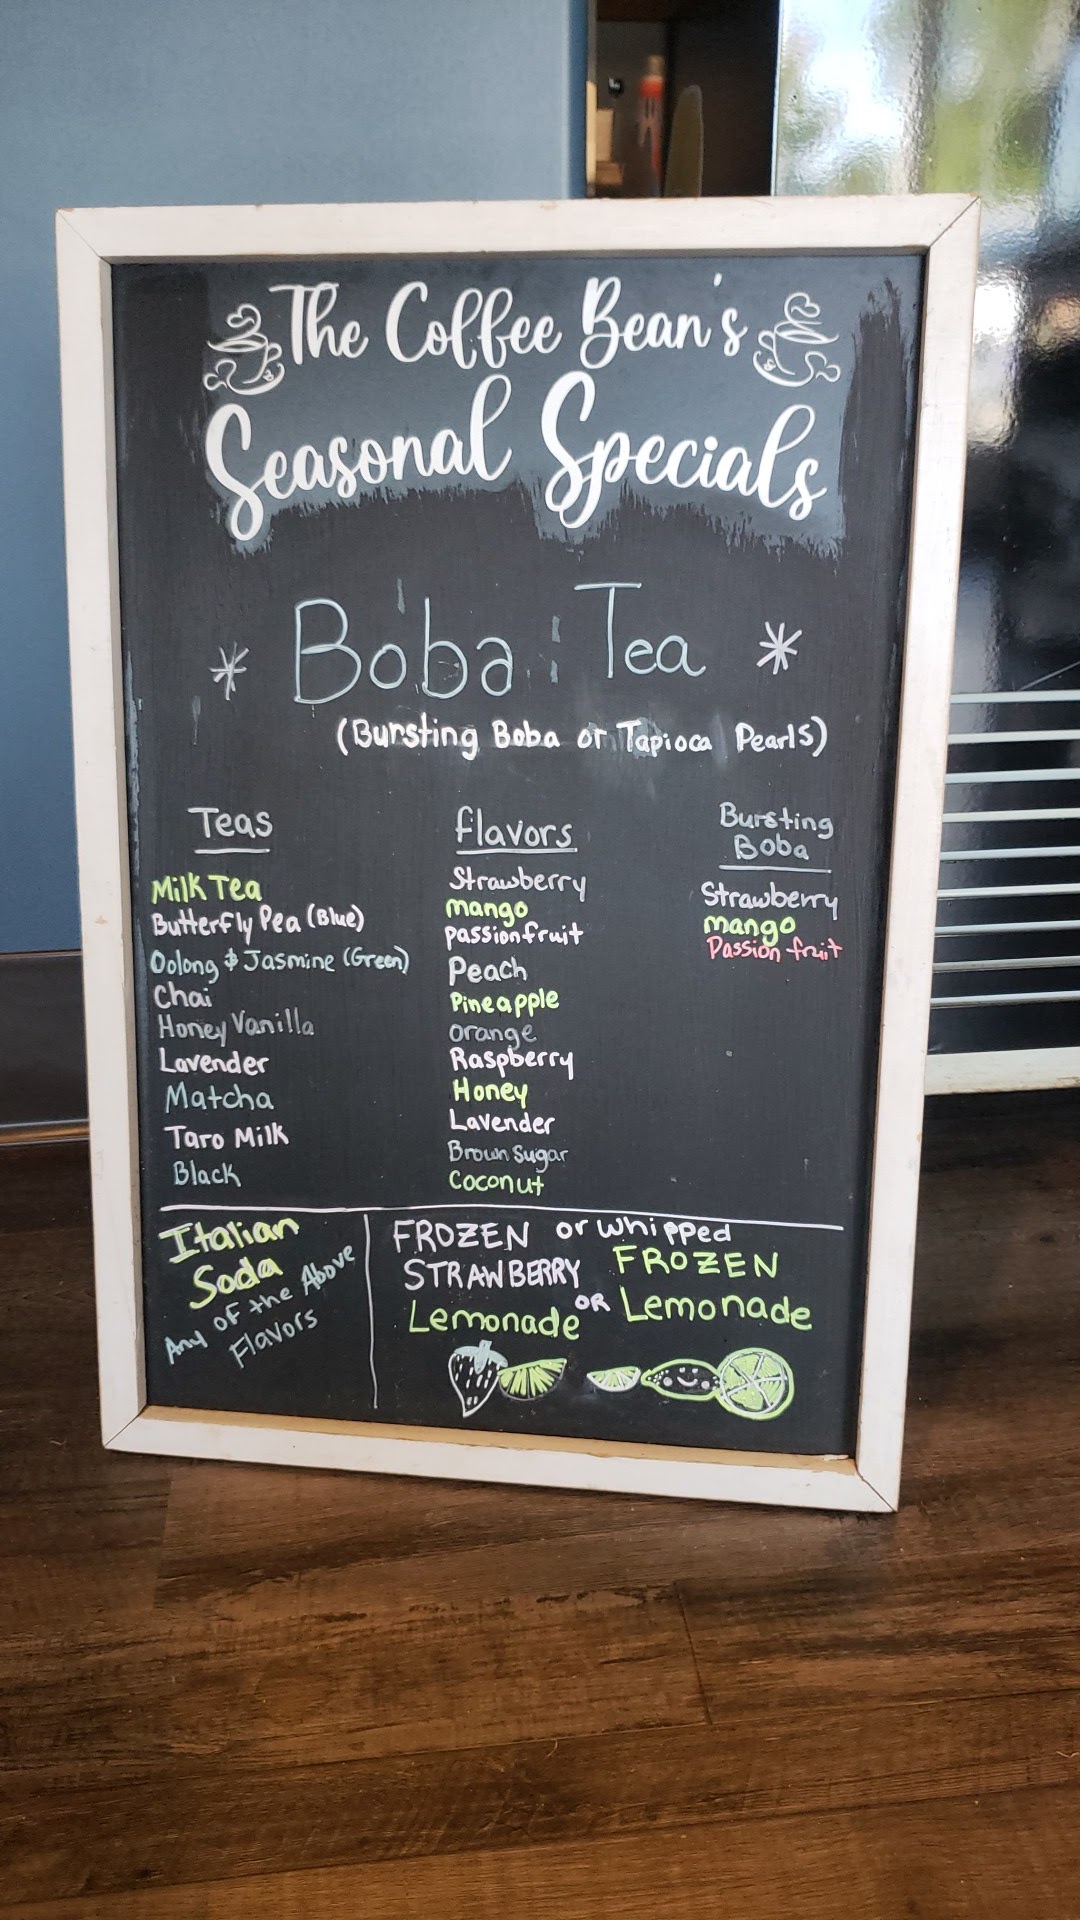 The Coffee Bean's
Seasonal Specials
* Boba Tea *
(Bursting Boba or Tapioca Pearls)
Teas
Milk Tea
Butterfly Pea (Blue)
Oolong & Jasmine (Green)
Chai
Honey Vanilla
Lavender
Matcha
Taro Milk
Black
flavors
Strawberry
mango
passionfruit
Peach
Pineapple
orange
Raspberry
Honey
Lavender
Brown Sugar
Coconut
Bursting
Boba
Strawberry
mango
Passion fruit
Italian
Soda
Any of the Above
Flavors
FROZEN or whipped
STRAWBERRY
Lemonade
OR
FROZEN
Lemonade